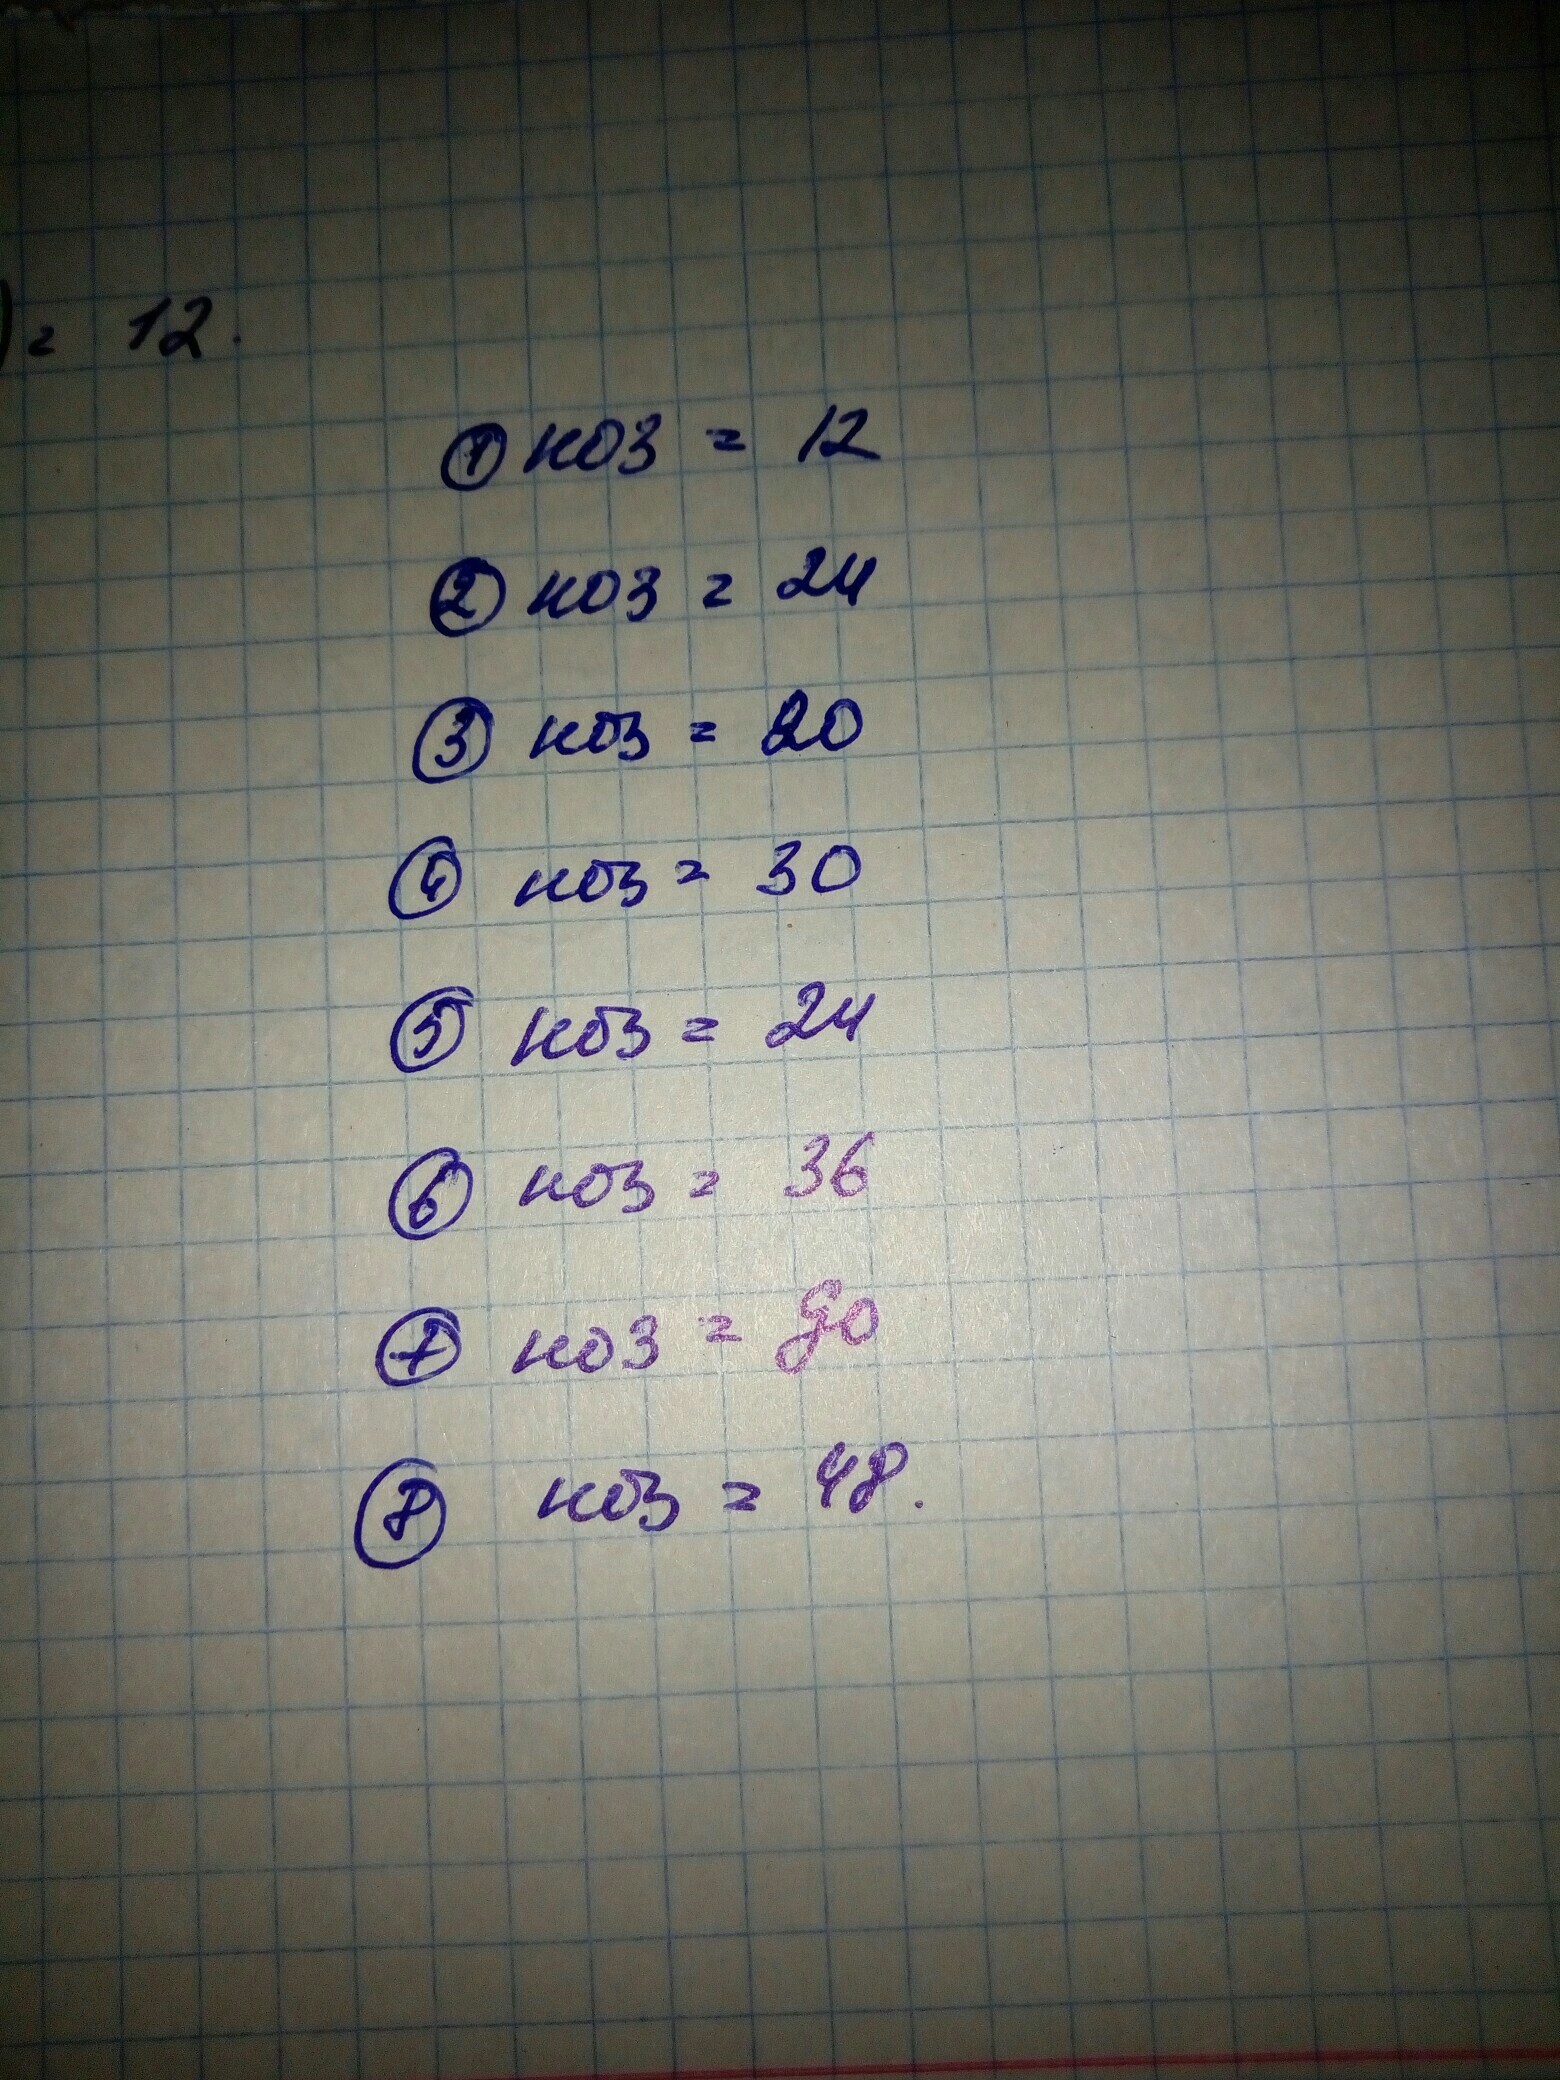 ) = 12.
① НОЗ = 12
② НОЗ = 24
③ НОЗ = 20
④ НОЗ = 30
⑤ НОЗ = 24
⑥ НОЗ = 36
⑦ НОЗ = 90
⑧ НОЗ = 48.